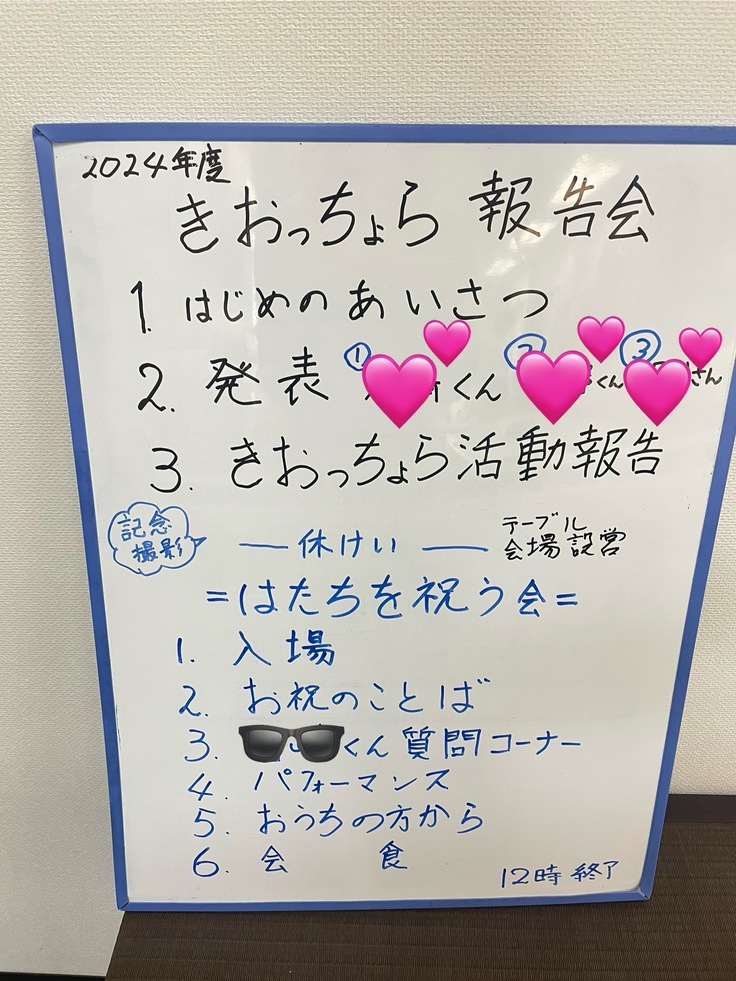 2024年度
きおっちょら 報告会
1. はじめのあいさつ
2. 発表 ① くん ② くん ③ さん
3. きおっちょら活動報告
記念
撮影
― 休けい ―
テーブル
会場設営
=はたちを祝う会=
1. 入場
2. お祝のことば
3. くん質問コーナー
4. パフォーマンス
5. おうちの方から
6. 会 食
12時 終了